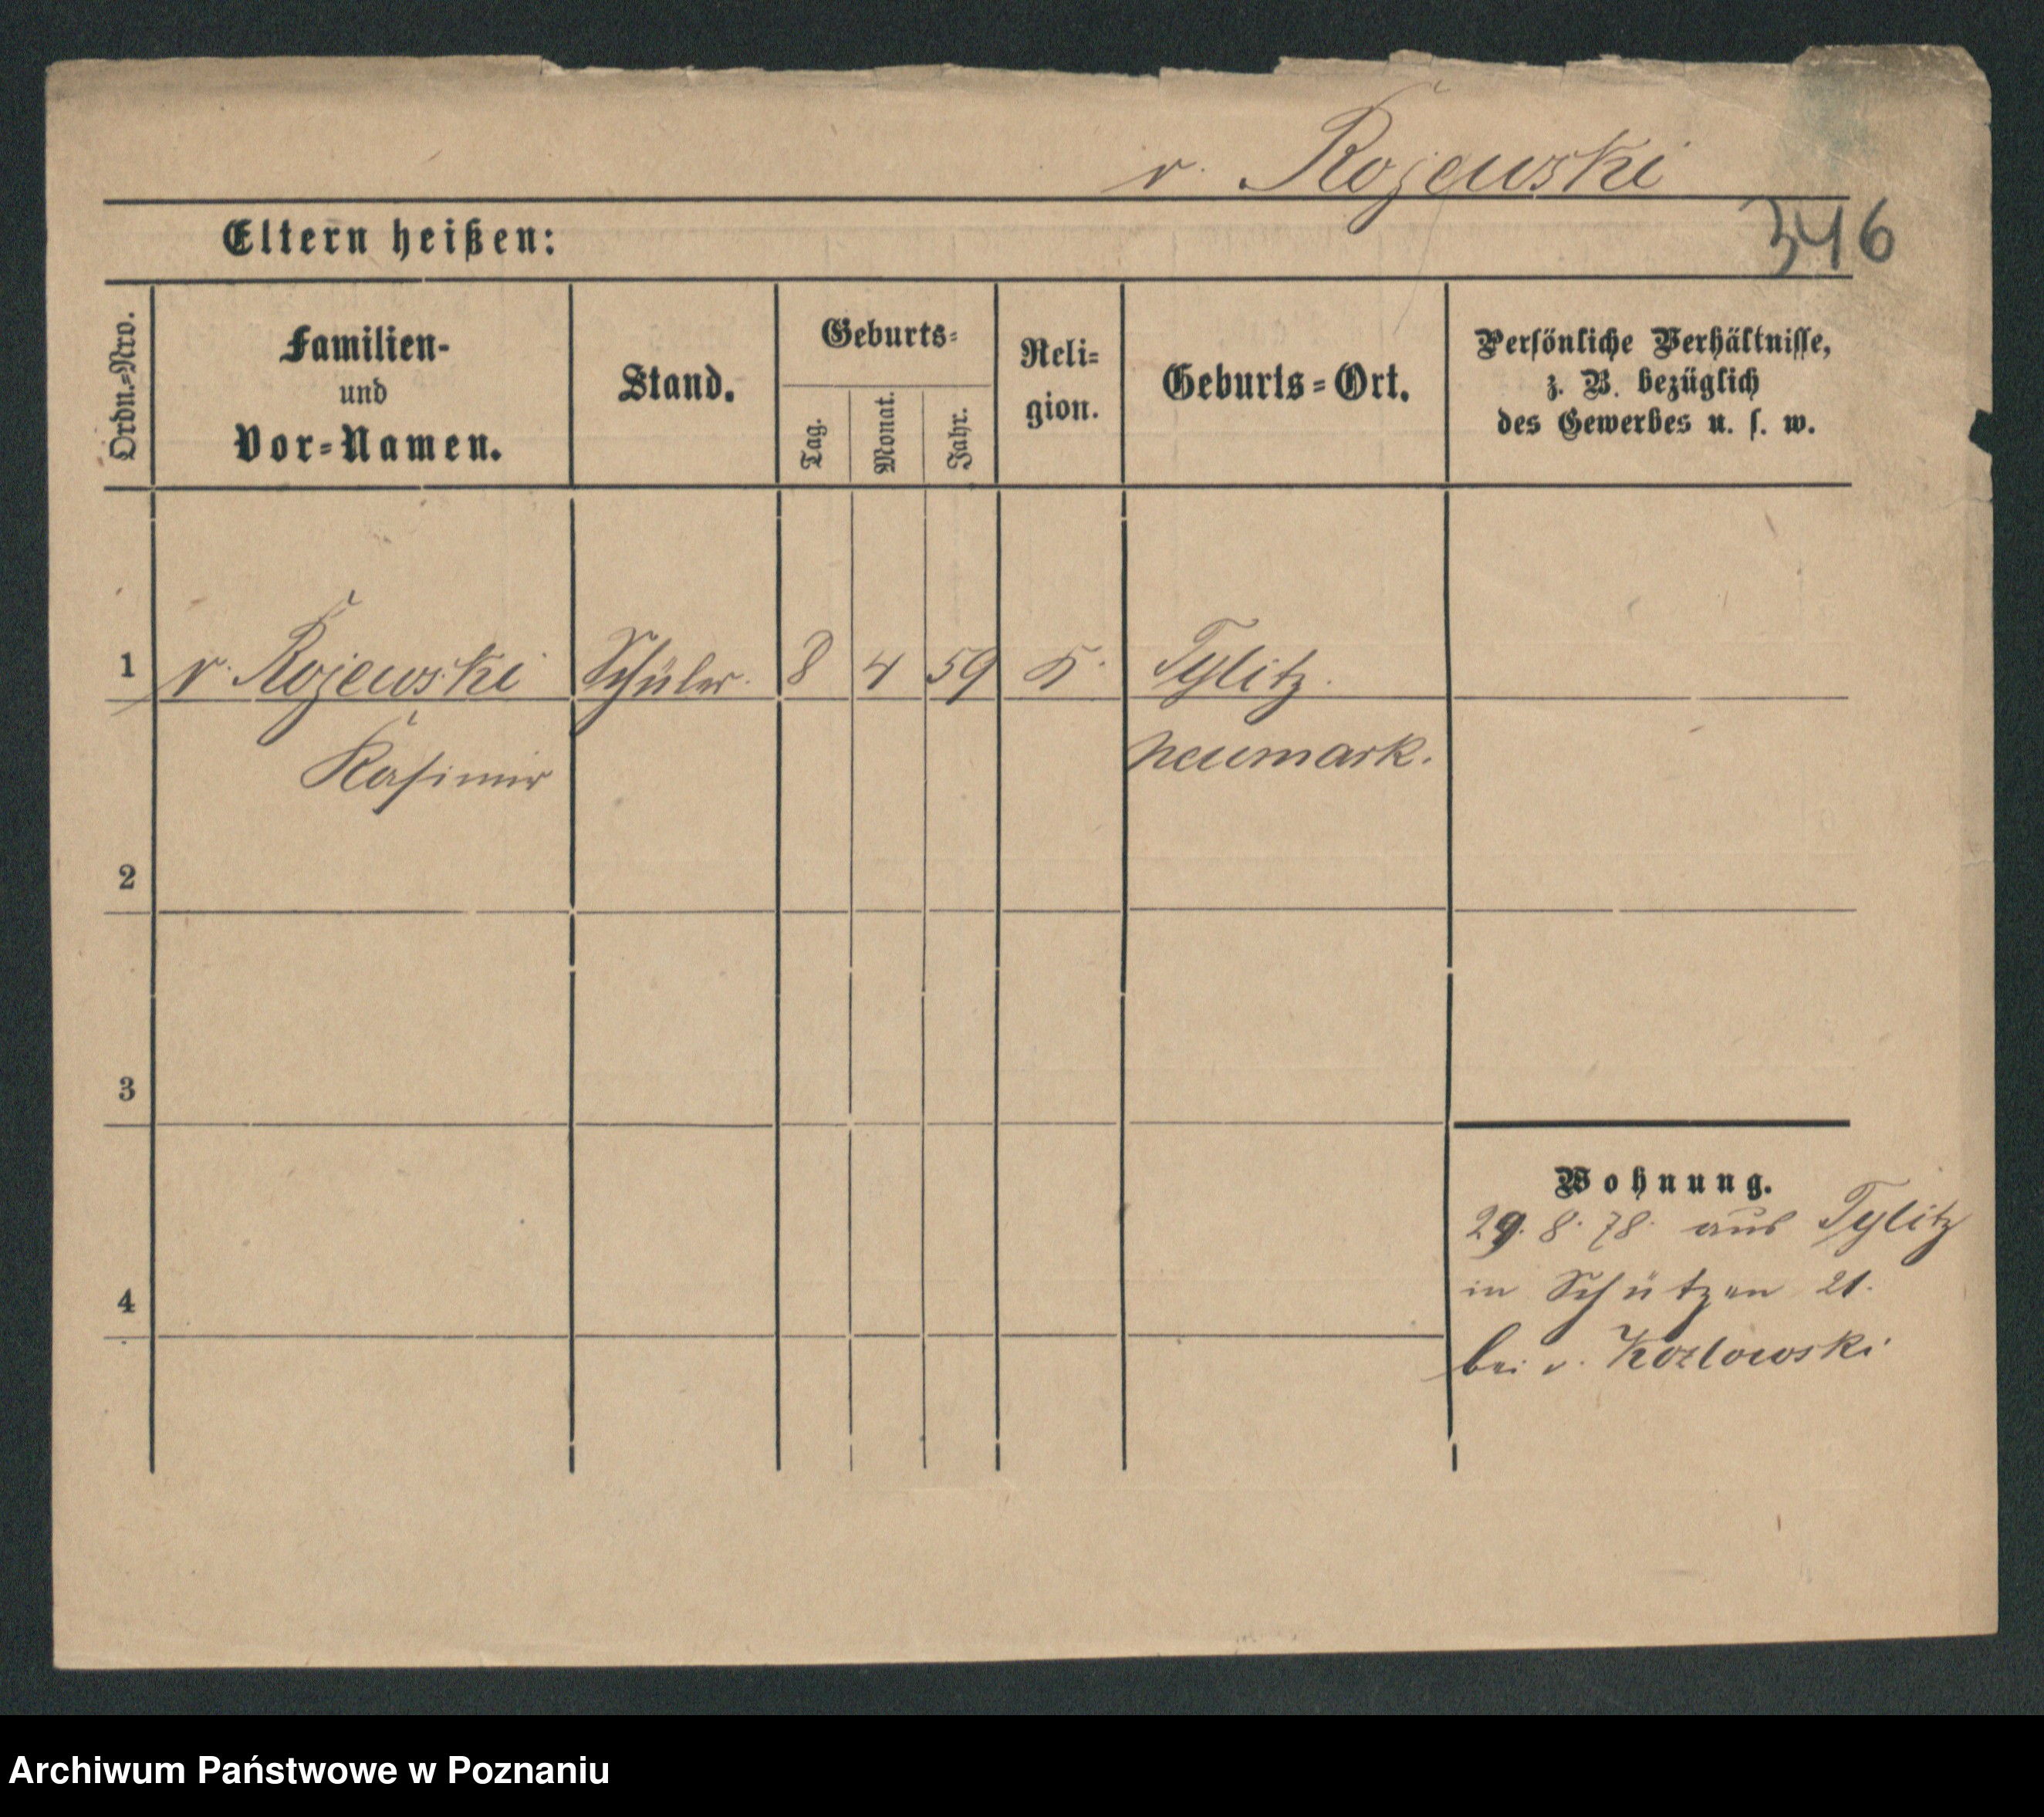 v. Rojewski
346
Eltern heißen:
Ordn.=Nro.
Familien-
und
Vor=Namen.
Stand.
Geburts=
Tag.
Monat.
Jahr.
Reli=
gion.
Geburts=Ort.
Persönliche Verhältnisse,
z. B. bezüglich
des Gewerbes u. s. w.
1 v. Rojewski Schüler. 8 4 59 K. Tylitz.
Kasimir neumark.
2
3
Wohnung.
29. 8. 78. aus Tylitz
in Schützen 21.
4
bei v. Kozlowski
Archiwum Państwowe w Poznaniu